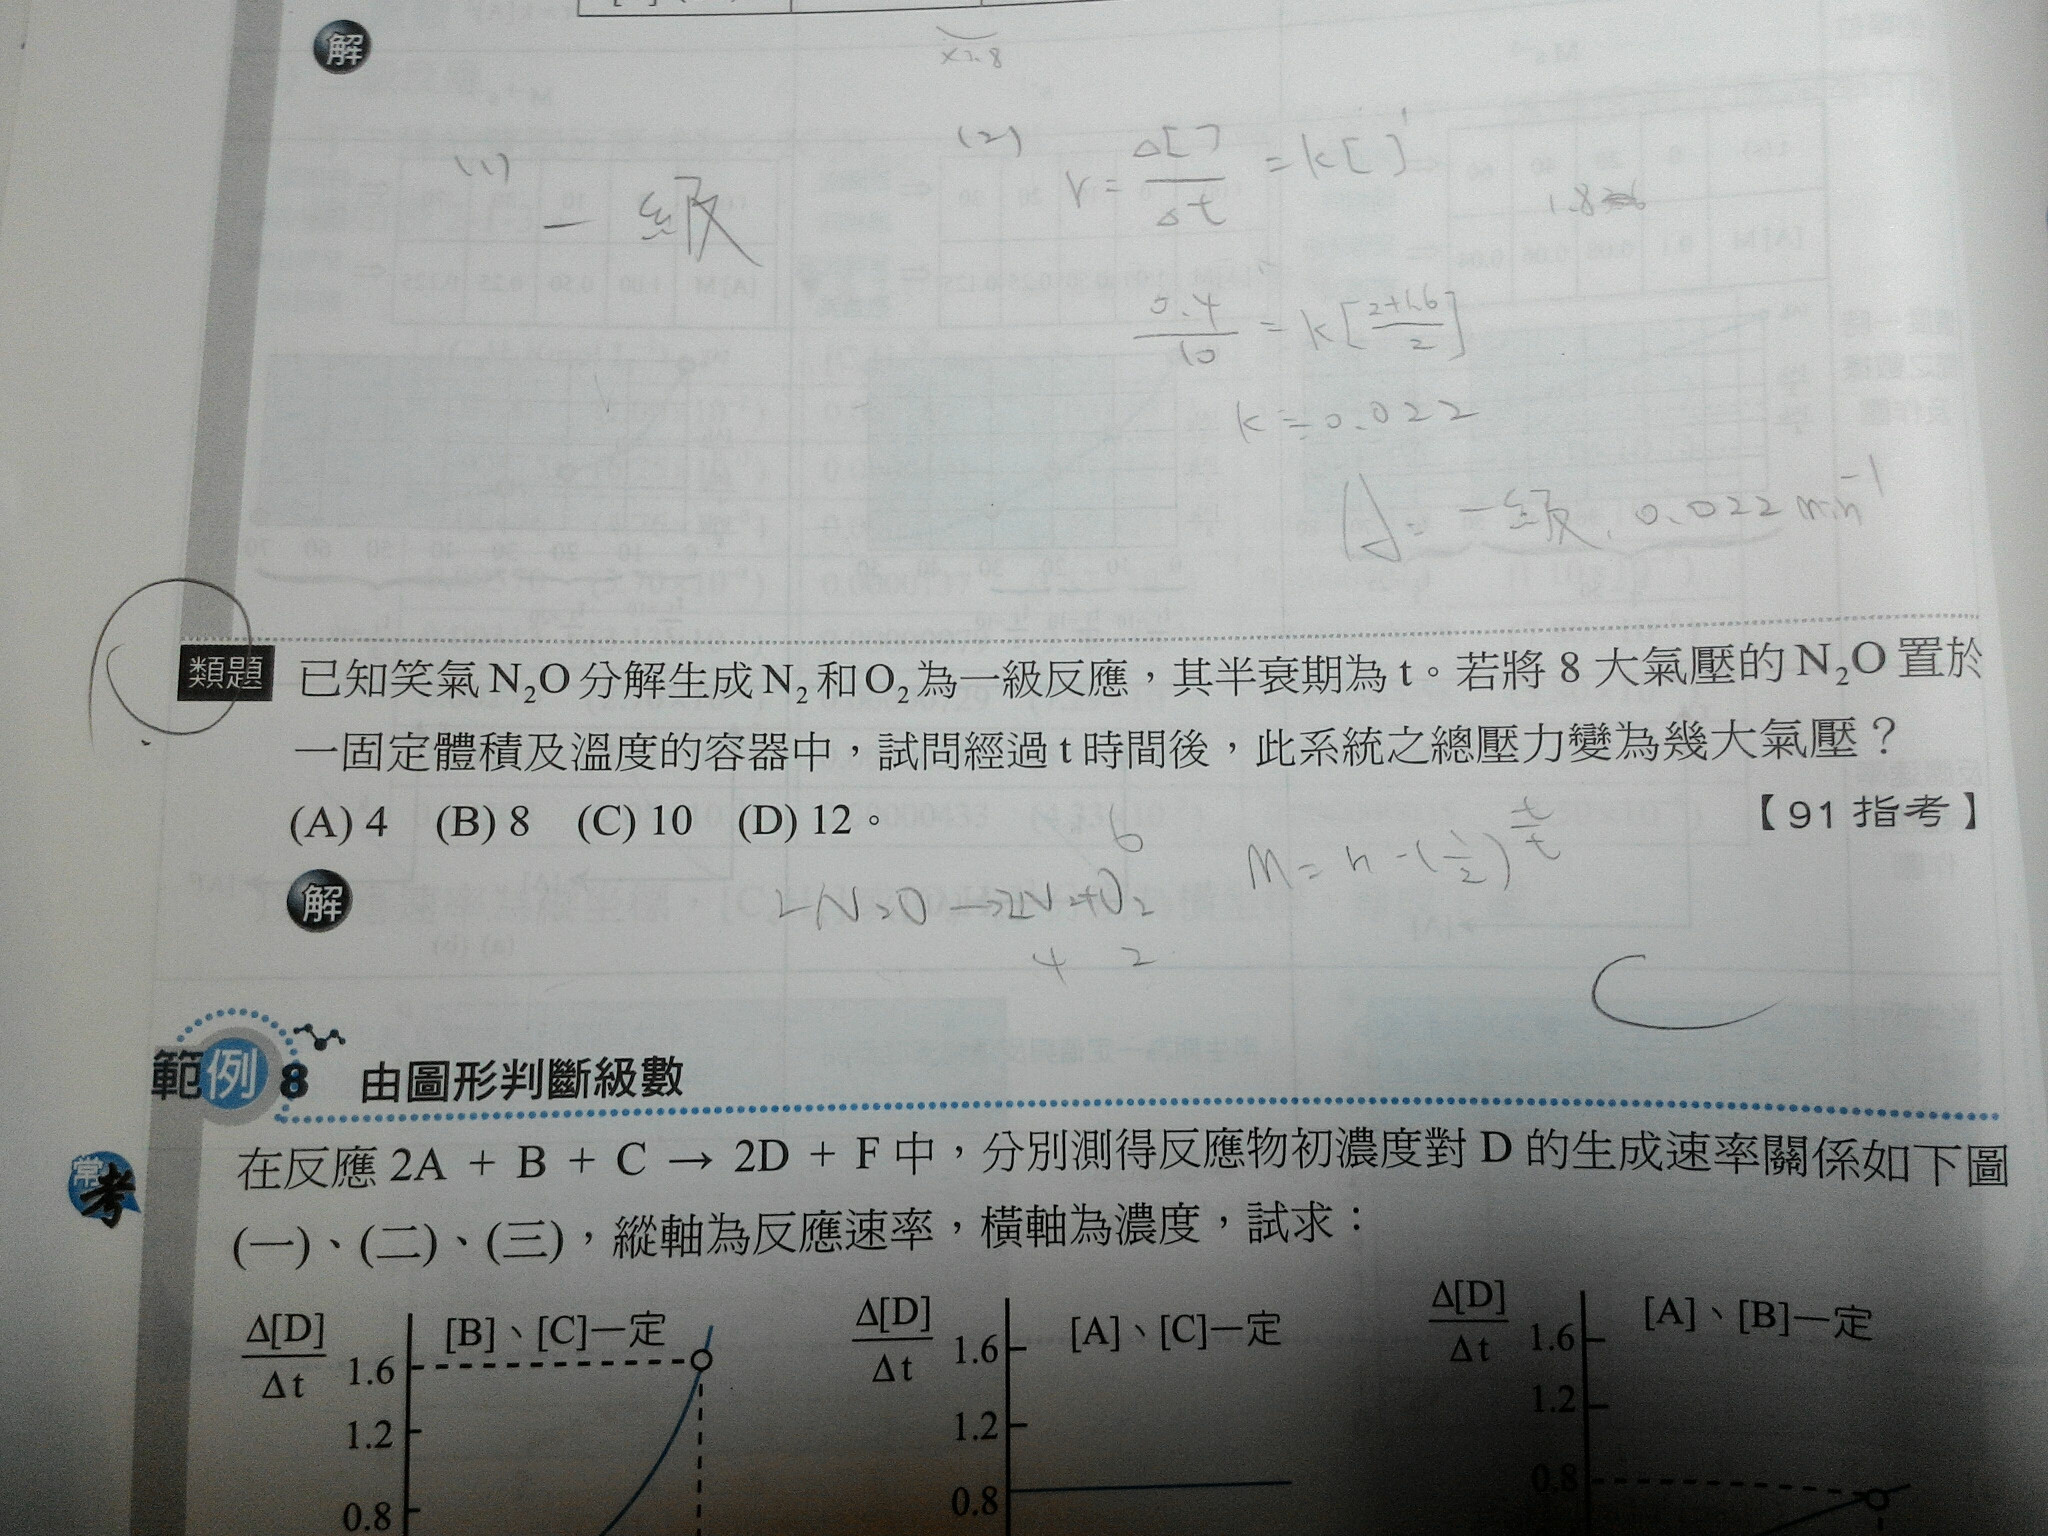 解
(1) 一級
(2) r = Δ[ ] / Δt = k[ ]¹
0.4 / 10 = k[ 2+1.6 / 2 ]
1.8
k ≒ 0.022
A = 一級, 0.022 min⁻¹
類題 已知笑氣 N₂O 分解生成 N₂ 和 O₂ 為一級反應，其半衰期為 t。若將 8 大氣壓的 N₂O 置於
一固定體積及溫度的容器中，試問經過 t 時間後，此系統之總壓力變為幾大氣壓？
(A) 4 (B) 8 (C) 10 (D) 12。 【91 指考】
6
M = n · (1/2)^(t/t)
解
2N₂O → 2N₂+O₂
4 2
C
範例 8 由圖形判斷級數
常考
在反應 2A + B + C → 2D + F 中，分別測得反應物初濃度對 D 的生成速率關係如下圖
(一)、(二)、(三)，縱軸為反應速率，橫軸為濃度，試求：
Δ[D] / Δt [B]、[C]一定
1.6
1.2
0.8
Δ[D] / Δt [A]、[C]一定
1.6
1.2
0.8
Δ[D] / Δt [A]、[B]一定
1.6
1.2
0.8